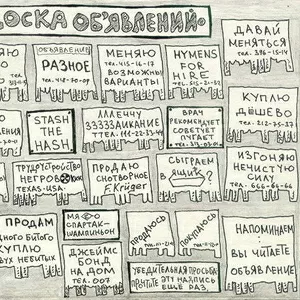 ДОСКА ОБЪЯВЛЕНИЙ
ОБЪЯВЛЕНИЕ
РАЗНОЕ
тел. 418-70-09
МЕНЯЮ
тел. 415-16-17
ВОЗМОЖНЫ
ВАРИАНТЫ
HYMENS
FOR
HIRE
ДАВАЙ
МЕНЯТЬСЯ
STASH
THE
HASH
АЛЛЕЧЧУ
ЗЗЗЗЗАИКАНИЕ
ВРАЧ
РЕКОМЕНДУЕТ
СОВЕТУЕТ
ПУГАЕТ
КУПЛЮ
ДЁШЕВО
ТРУДУСТРОЙСТВО
НЕГРОВ
TEXAS-USA.
ПРОДАЮ
СНОТВОРНОЕ
F. Krüger
СЫГРАЕМ
В ЯЩИК?
ИЗГОНЯЮ
НЕЧИСТУЮ
СИЛУ
тел. 666-66-66
ПРОДАМ
ОДНОГО БИТОГО
КУПЛЮ
ДВУХ НЕБИТЫХ
СПАРТАК-
ШАМПИНЬОН
ДЖЕЙМС
БОНД
НА ДОМ
ТЕЛ. 007
ПРОДАЮСЬ
ПОКУПАЮСЬ
УБЕДИТЕЛЬНАЯ ПРОСЬБА
ПРОЧТИТЕ ЭТУ НАДПИСЬ
ЕЩЁ РАЗ,
НАПОМИНАЕМ
ВЫ ЧИТАЕТЕ
ОБЪЯВЛЕНИЕ